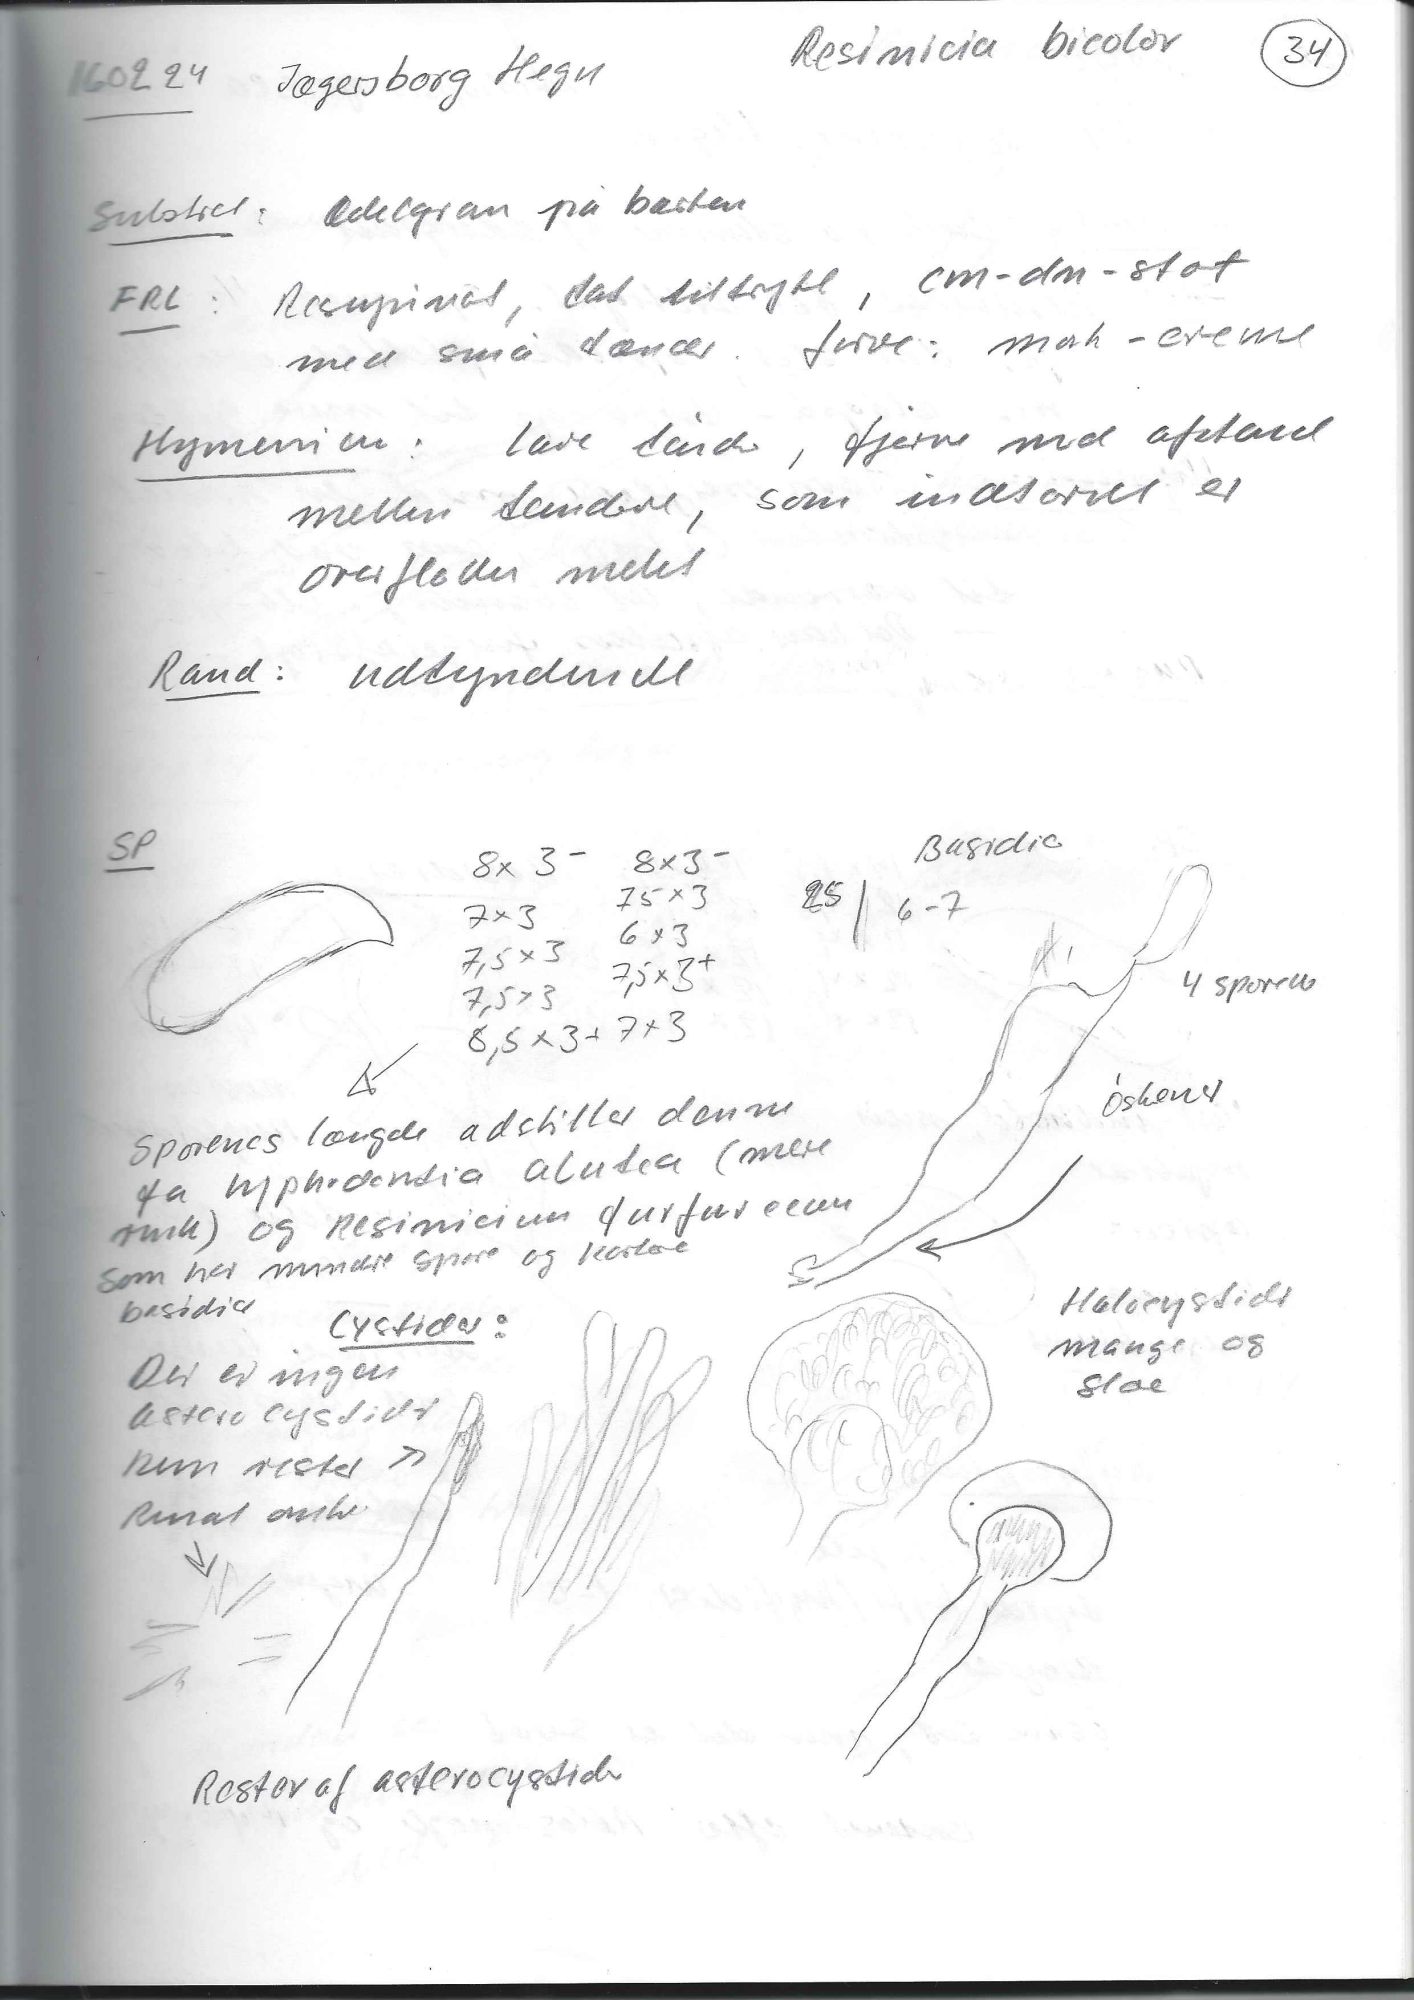 160224 Jægersborg Hegn
Resinicia bicolor 34
Substrat: Ædelgran på barken
FRL: Resupinat, tæt tiltrykt, cm-dm-stor
med små tænder. farve: mørk-creme
Hymenium: lave tænder, fjerne med afstand
mellem tænderne, som indtørret er
overfladen melet
Rand: udtyndende
SP
8x3- 8x3-
7x3 75x3
7,5x3 6x3
7,5x3 7,5x3+
8,5x3+ 7x3
Basidie
25 / 6-7
4 sporede
Sporenes længde adskiller denne
fra hyphodontia alutea (mere
smal) og Resinicium furfuraceum
som har mindre spore og kortere
basidie
Cystider:
Der er ingen
asterocystider
Kun rester >
Halocystider
mange og
Rester af asterocystider